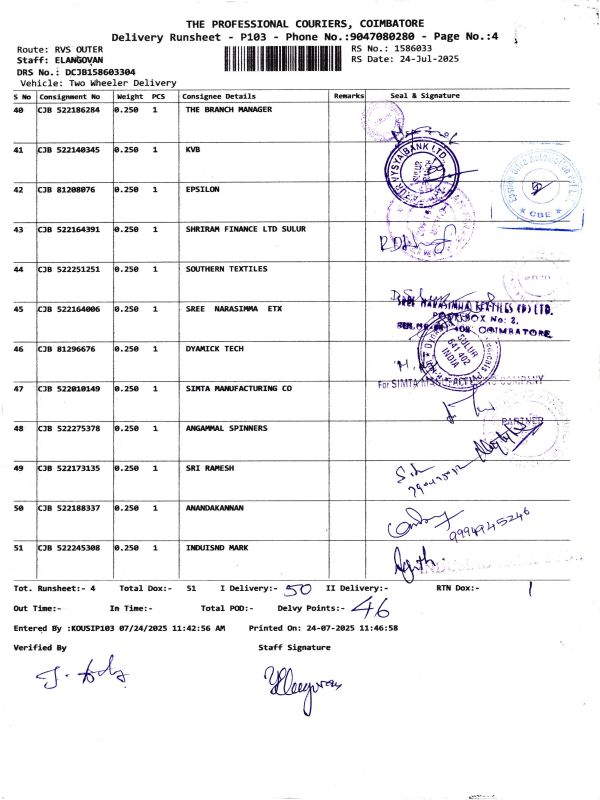 THE PROFESSIONAL COURIERS, COIMBATORE
Delivery Runsheet - P103 - Phone No.:9047080280 - Page No.:4
Route: RVS OUTER
RS No.: 1586033
Staff: ELANGOVAN
RS Date: 24-Jul-2025
DRS No.: DCJB158603304
Vehicle: Two Wheeler Delivery
S No Consignment No Weight PCS Consignee Details Remarks Seal & Signature
40 CJB 522186284 0.250 1 THE BRANCH MANAGER
41 CJB 522140345 0.250 1 KVB
VYSYA BANK LTD.
42 CJB 81208076 0.250 1 EPSILON
CBE
43 CJB 522164391 0.250 1 SHRIRAM FINANCE LTD SULUR
44 CJB 522251251 0.250 1 SOUTHERN TEXTILES
45 CJB 522164006 0.250 1 SREE NARASIMMA ETX
SREE NARASIMMA TEXTILES (P) LTD.
POST BOX No: 2,
COIMBATORE
46 CJB 81296676 0.250 1 DYAMICK TECH
SULUR
641 402
INDIA
47 CJB 522010149 0.250 1 SIMTA MANUFACTURING CO
For SIMTA MANUFACTURING COMPANY
PARTNER
48 CJB 522275378 0.250 1 ANGAMMAL SPINNERS
49 CJB 522173135 0.250 1 SRI RAMESH
50 CJB 522188337 0.250 1 ANANDAKANNAN
9994945246
51 CJB 522245308 0.250 1 INDUISND MARK
INDUSIND
Tot. Runsheet:- 4 Total Dox:- 51 I Delivery:- 50 II Delivery:- RTN Dox:- 1
Out Time:- In Time:- Total POD:- Delvy Points:- 46
Entered By :KOUSIP103 07/24/2025 11:42:56 AM Printed On: 24-07-2025 11:46:58
Verified By Staff Signature